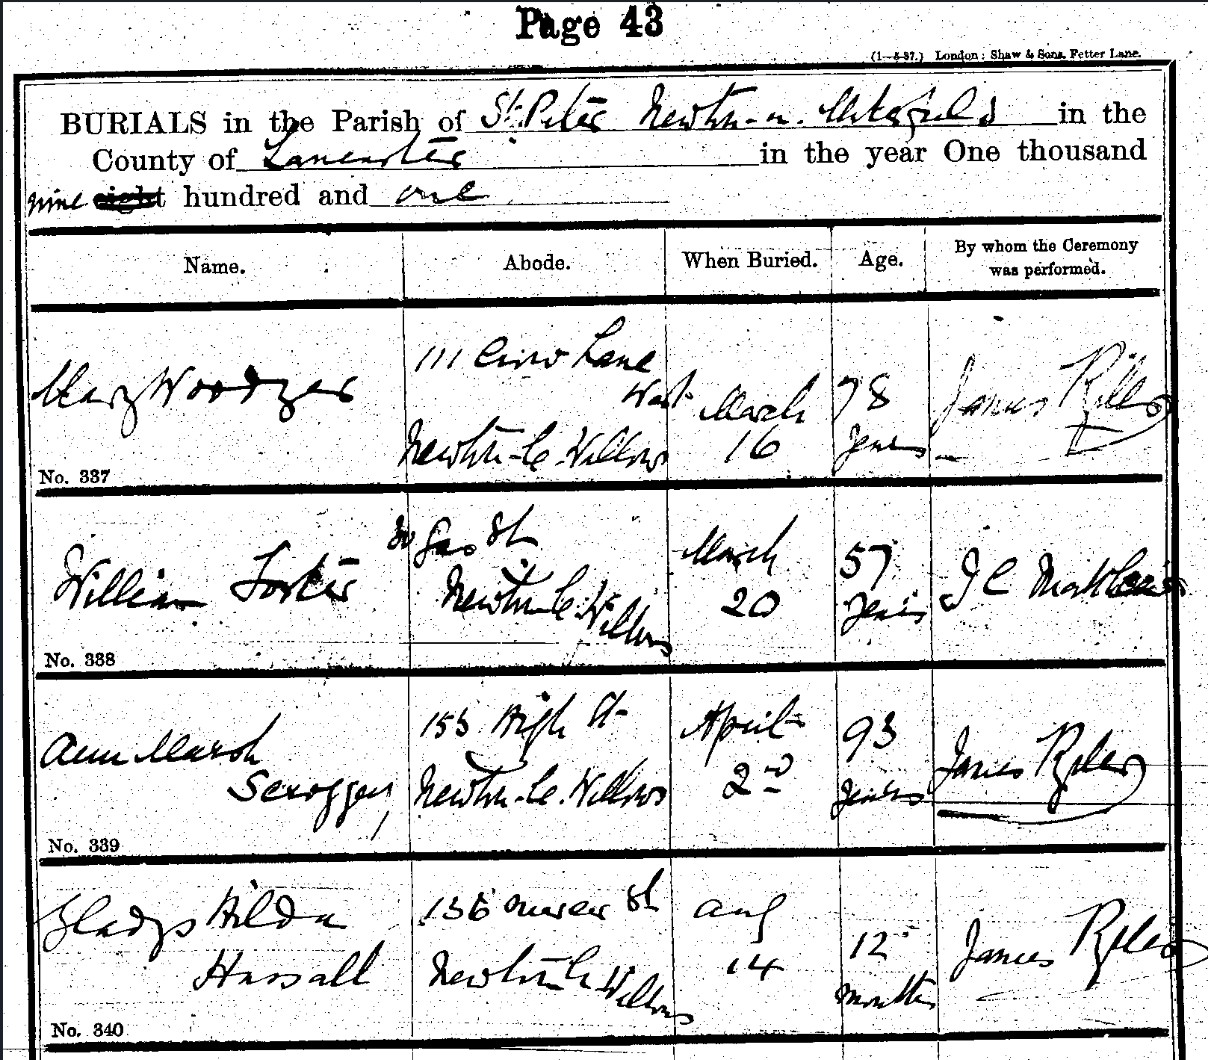 Page 43
(1-5-97.) London: Shaw & Sons, Fetter Lane.
BURIALS in the Parish of St. Peter Newton-in-Makerfield in the
County of Lancaster in the year One thousand
nine eight hundred and one
Name. Abode. When Buried. Age. By whom the Ceremony
was performed.
Mary
111 Crow Lane
West
Newton-le-Willows
March
16
78
years
James
No. 337
William Foster
30 Gas St
Newton-le-Willows
March
20
57
years
J C
No. 338
Ann Marsh
Scroggey
155 High St
Newton-le-Willows
April
2nd
93
years
James
No. 339
Gladys Hilda
Hassall
Newton le Willows
Aug
14
12
months
James
No. 340